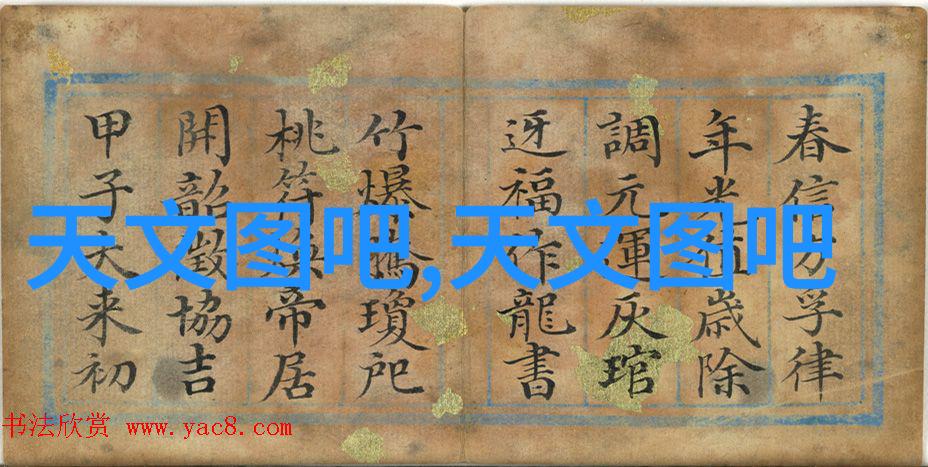 春信方孚律
年光值歲除
調元運灰琯
迓福作龍書
竹爆瓊戺
桃符帝居
開韶徵協吉
甲子来初
天文图吧,天文图吧
书法欣赏 www.yac8.com